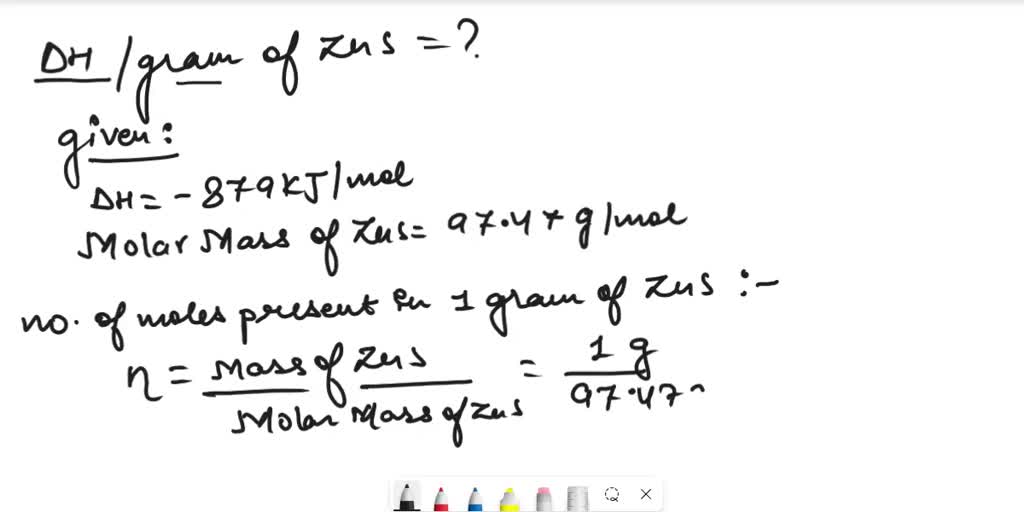 ΔH/gram of ZnS = ?
given:
ΔH = - 879 KJ/mol
Molar Mass of ZnS = 97.47 g/mol
no. of moles present in 1 gram of ZnS :-
n = Mass of ZnS / Molar Mass of ZnS = 1 g / 97.47